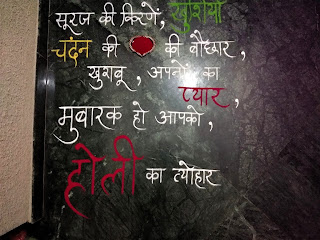 सूरज की किरणें, खुशियों
चंदन की की बौछार,
खुशबू, अपनों का
प्यार,
मुबारक हो आपको,
होली का त्योहार